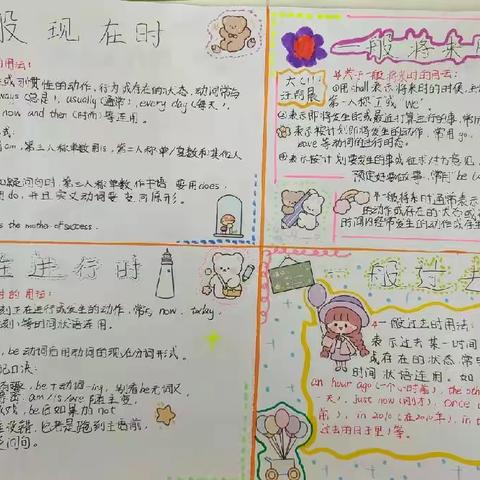 般 现 在 时
用法：
或习惯性的动作，行为或存在的状态，动词常与
ways（总是），usually（通常），every day（每天），
now and then（时而）等连用。
式：
am，第三人称单数用is，第二人称单/复数和其他人
疑问句时，第三人称单数作主语 要用does，
用do，并且实义动词要变为原形。
s the mother of success.
一般将来
大口
汪芮晨
关于一般将来时的用法：
①用shall表示将来时的时候，主
第一人称 I 或 We'.
②表示即将发生的或最近打算进行的事，常用
③表示按计划即将发生的动作，常用go,
leave等动词的进行时态。
④表示按计划要发生的事或征求对方意见，
预定好要做事，常用be
一般将来时通常表示
的动作或存在的状态或
时间内经常发生的动作或存在
在 进 行 时
时的用法：
刻正在进行或发生的动作，常与 now, today,
刻，等时间状语连用。
be动词后用动词的现在分词形式。
记口决：
要，be + 动词-ing，别看be无词义，
am/is/are 随主变。
be后如果加not
没错，be若是跑到主语前，
问句。
一般过去
一般过去时的用法：
表示过去某一时间
或存在的状态，常与
时间状语连用。如
an hour ago（一个小时前），the oth
天），just now（刚才），once
前），in 2010（在2010年），in t
过去的日子里）等。